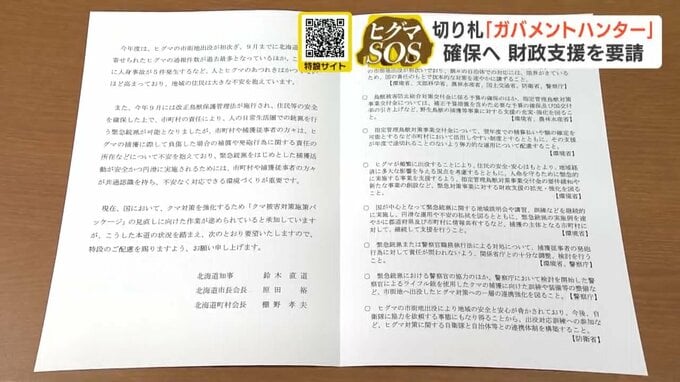 ヒグマ
SOS
特設サイト
切り札「ガバメントハンター」
確保へ 財政支援を要請
今年度は、ヒグマの市街地出没が相次ぎ、9月までに北海道
寄せられたヒグマの通報件数が過去最多となっているほか、
に人身事故が5件発生するなど、人とヒグマのあつれきはかつて
ほど高まっており、地域の住民は大きな不安を抱えています。
また、今年9月には改正鳥獣保護管理法が施行され、住民等の安全
を確保した上で、市町村の責任により、人の日常生活圏での銃猟を行
う緊急銃猟が可能となりましたが、市町村や捕獲従事者の方々は、ヒ
グマの捕獲に際して負傷した場合の補償や発砲行為に関する責任の
所在などについて不安を抱えており、緊急銃猟をはじめとした捕獲活
動が安全かつ円滑に実施されるためには、市町村や捕獲従事者の方々
が共通認識を持ち、不安なく対応できる環境づくりが重要です。
現在、国において、クマ対策を強化するため「クマ被害対策施策パ
ッケージ」の見直しに向けた作業が進められていると承知しています
が、こうした本道の状況を踏まえ、次のとおり要望いたしますので、
特段のご配慮を賜りますよう、お願い申し上げます。
北海道知事 鈴木 直道
北海道市長会長 原田 裕
北海道町村会長 棚野 孝夫
め、国の責任のもとで抜本的な対策を速やかに講ずること。
【環境省、文部科学省、農林水産省、国土交通省、防衛省、警察庁】
○ 鳥獣被害防止総合対策交付金に係る予算の確保のほか、指定管理鳥獣対策
事業交付金については、補正予算措置を含めた必要な予算の確保及び交付率
の引き上げなど、野生鳥獣被害等に対する支援の充実・強化を図ること。
【環境省、農林水産省】
○ 指定管理鳥獣対策事業交付金について、翌年度での精算払いや額の確定を
可能とするなど市町村において活用しやすい制度とするとともに、交付金が
年度で途切れることのないよう弾力的な運用について配慮すること。
【環境省】
○ ヒグマが頻繁に出没することにより、住民の安全・安心はもとより、地域経
済に多大な影響を与える国点を考慮するとともに、人身を守るために緊急的
に実施する事業を支援するよう、指定管理鳥獣対策事業交付金の要件緩和や
新たな事業の創設など、緊急対策事業に対する財政支援の拡充・強化を図る
こと。
【環境省】
○ 国が中心となって緊急銃猟に関する地域説明会や講習、訓練などを継続的
に実施し、円滑な運用や不安の払拭を図るとともに、緊急銃猟の実施例を速
やかに都道府県及び市町村に情報共有するなど、捕獲の主体となる市町村に
対して、継続して支援を行うこと。
【環境省】
○ 緊急銃猟または警察官職務執行法による対処について、捕獲従事者の発砲
行為に対して責任が問われないよう、関係省庁との十分な調整、検討を行う
こと。
【環境省、警察庁】
○ 緊急銃猟における警察官の協力のほか、警察庁において検討を開始した警
察官によるライフル銃を使用したクマの捕獲に向けた訓練や装備等の整備な
ど、市街地へ出没したヒグマ対策への一層の連携強化を図ること。【警察庁】
○ ヒグマの市街地出没により地域の安全と安心が脅かされており、今後、自
衛隊に協力を依頼する事態にもなり得ることから、出没対応訓練への参加な
ど、ヒグマ対策に関する自衛隊と自治体等との連携体制を構築すること。
【防衛省】